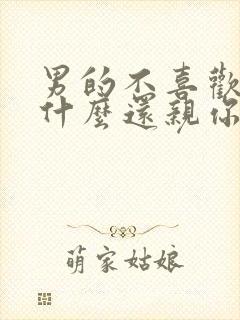 男的不喜歡
什麼還親你
萌家姑娘